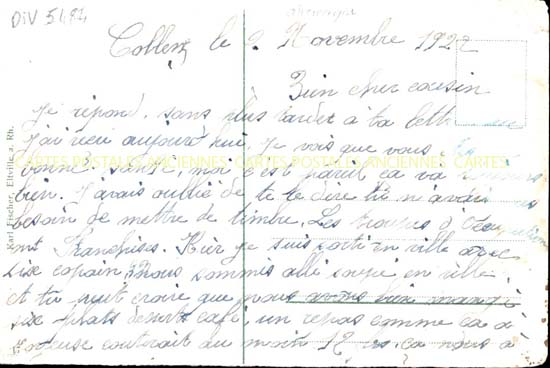 DIV 5484
Allemagne
Coblenz le 9 Novembre 1922
Bien cher cousin
Je répond, sans plus tarder à ta lettre
j'ai reçu aujourd'hui, Je vois que vous
bonne santé, moi c'est pareil ca va toujours
bien. J'avais oublié de te le dire tu n'avais pas
besoin de mettre de timbre. Les troupes d'Occupation
ont Franchises. Hier je suis sorti en ville avec
six copain nous sommis allé soupé en ville,
et tu peut croire que nous avons bien mangé
six plats desserts café, un repas comme ca à
couterait au moin 12 ca nous a
Karl Fischer, Eltville a. Rh.
CARTES POSTALES ANCIENNES CARTES POSTALES ANCIENNES CARTES